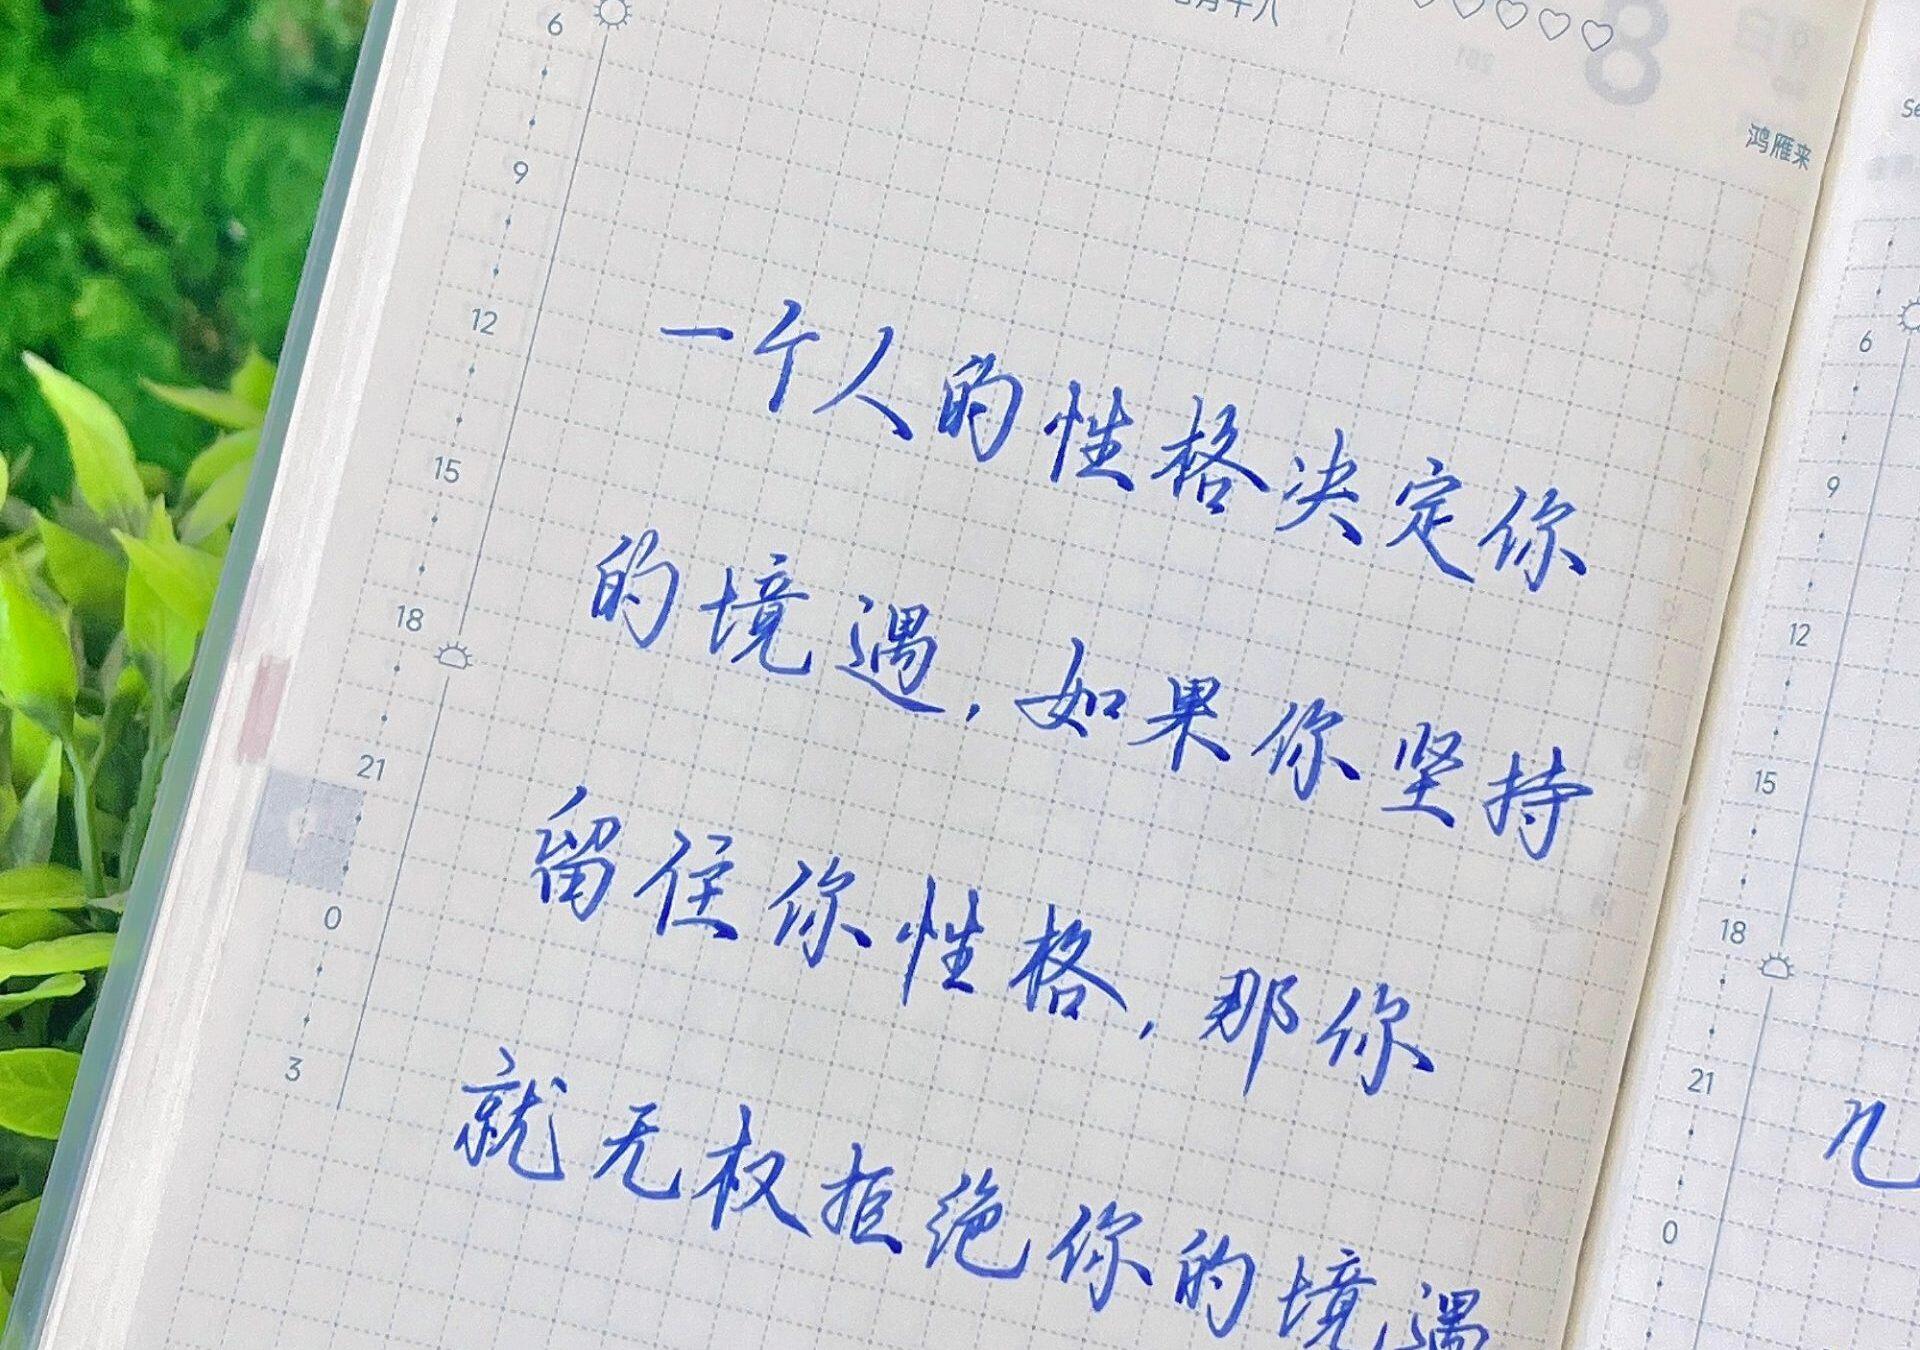 6
9
12
15
18
21
0
3
8
鸿雁来
一个人的性格决定你
的境遇，如果你坚持
留住你性格，那你
就无权拒绝你的境遇
6
9
12
15
18
21
0
几